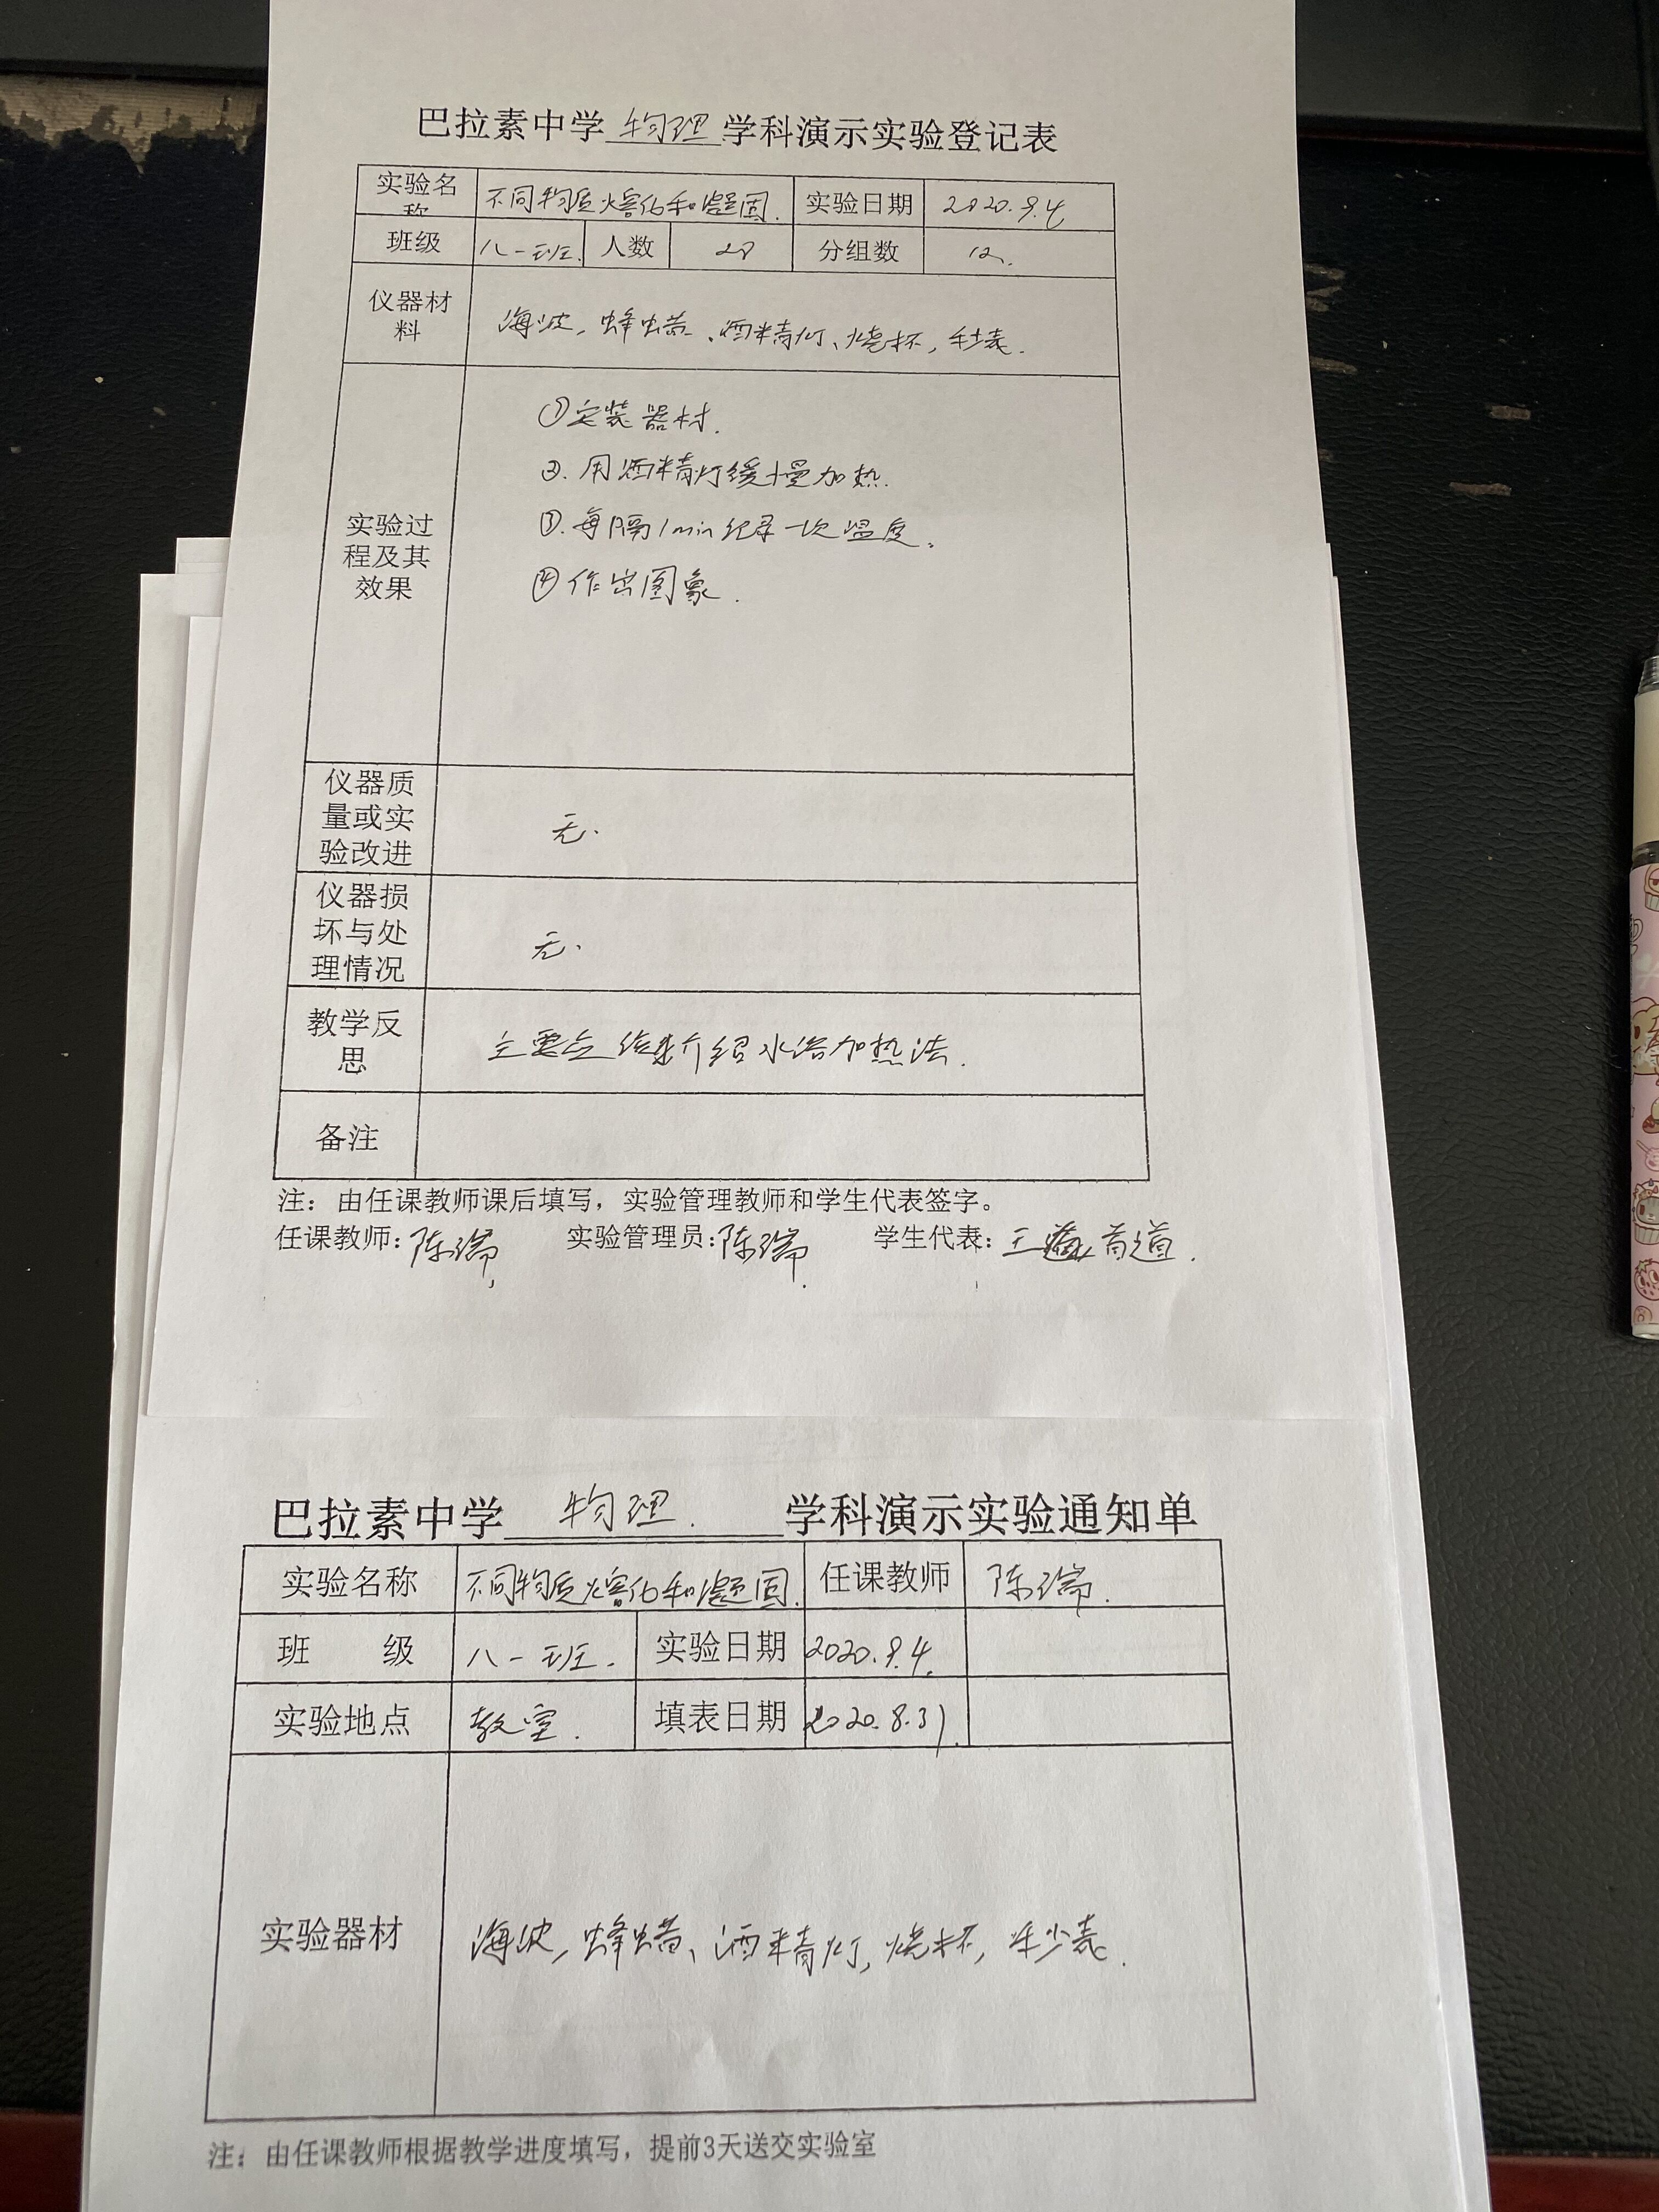 巴拉素中学 物理 学科演示实验登记表
实验名称 不同物质熔化和凝固. 实验日期 2020.9.4
班级 八一班. 人数 28 分组数 12.
仪器材料 海波, 蜂蜡、酒精灯、烧杯, 秒表.
实验过程及其效果
①安装器材.
②.用酒精灯缓慢加热.
③.每隔1min纪录一次温度。
④作出图象.
仪器质量或实验改进 无.
仪器损坏与处理情况 无.
教学反思 主要介绍水浴加热法.
备注
注：由任课教师课后填写，实验管理教师和学生代表签字。
任课教师：陈瑞 实验管理员：陈瑞. 学生代表：
巴拉素中学 物理. 学科演示实验通知单
实验名称 不同物质熔化和凝固. 任课教师 陈瑞.
班 级 八一班. 实验日期 2020.9.4.
实验地点 教室. 填表日期 2020.8.31.
实验器材 海波, 蜂蜡、酒精灯, 烧杯, 秒表.
注：由任课教师根据教学进度填写，提前3天送交实验室